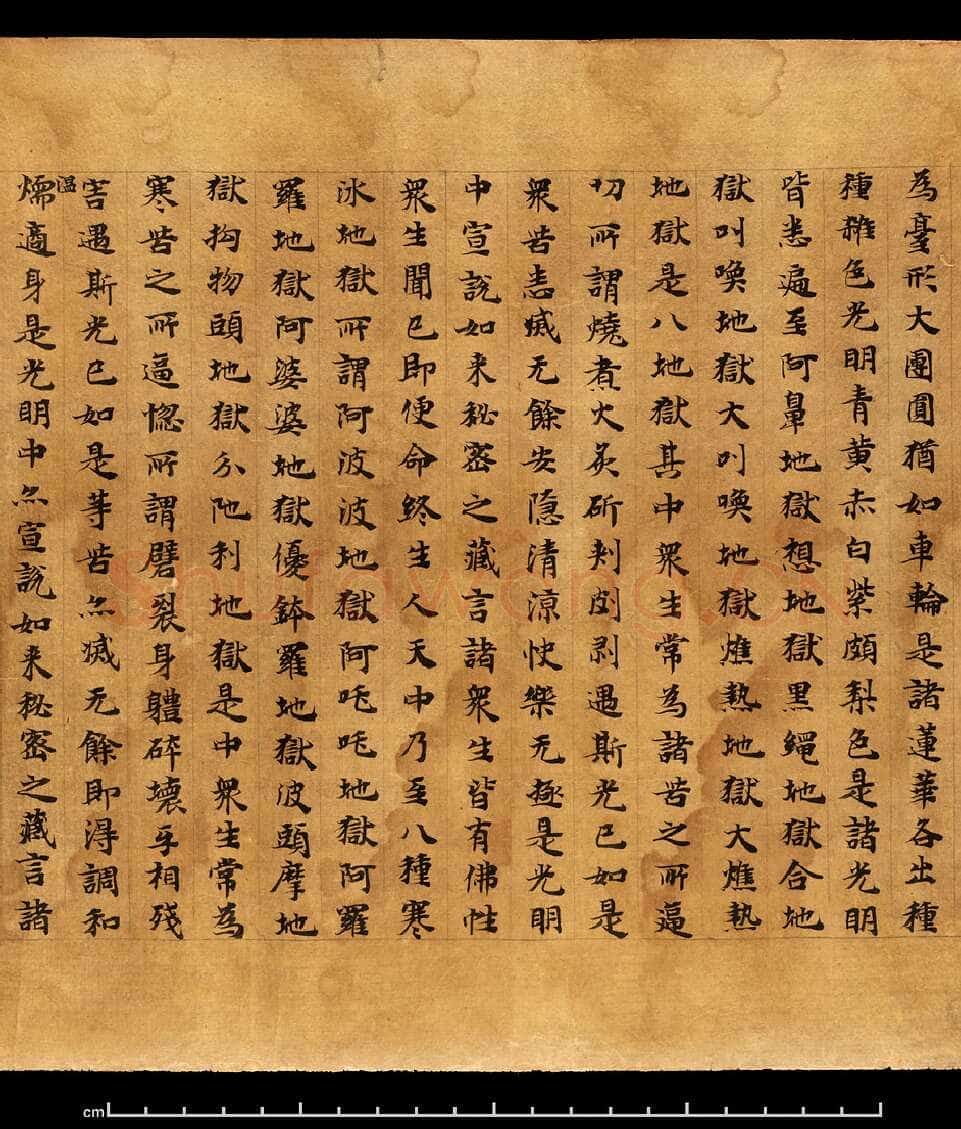 為臺形大團圓猶如車輪是諸蓮華各出種
種雜色光明青黃赤白紫頗梨色是諸光明
皆悉遍至阿鼻地獄想地獄黑繩地獄合地
獄叫喚地獄大叫喚地獄燋熱地獄大燋熱
地獄是八地獄其中衆生常為諸苦之所逼
切所謂燒煮火炙斫刾剅剥遇斯光已如是
衆苦悉滅无餘安隱清涼快樂无極是光明
中宣說如来秘密之藏言諸衆生皆有佛性
衆生聞已即便命終生人天中乃至八種寒
氷地獄所謂阿波波地獄阿吒吒地獄阿羅
羅地獄阿婆婆地獄優鉢羅地獄波頭摩地
獄拘物頭地獄分陁利地獄是中衆生常為
寒苦之所逼惱所謂劈裂身體碎壞㸦相殘
害遇斯光已如是等苦亦滅无餘即得調和
溫
燸適身是光明中亦宣說如来秘密之藏言諸
cm